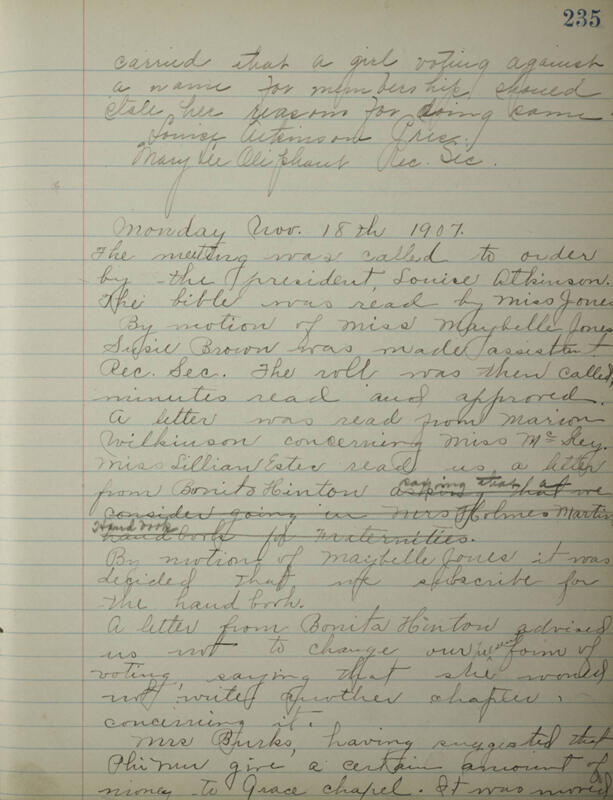 235
carried that a girl voting against
a name for membership should
state her reasons for doing same.
Louise Atkinson Pres.
Mary Lee Oliphant Rec. Sec.
Monday Nov. 18th 1907.
The meeting was called to order
by the president, Louise Atkinson.
The bible was read by Miss Jones
By motion of Miss Maybelle Jones
Susie Brown was made assistant
Rec. Sec. The roll was then called,
minutes read and approved.
A letter was read from Marion
Wilkinson concerning Miss
Miss Lillian Estes read us a letter
from Bonita Hinton asking that we
saying that a
consider going in Mrs Holmes Martin
Hand book
hand book for Fraternities.
By motion of Maybelle Jones it was
decided that we subscribe for
the hand book.
A letter from Bonita Hinton advised
us not to change our form of
voting, saying that she would
not write another chapter
concerning it.
Mrs Burks, having suggested that
Phi Mu give a certain amount of
money to Grace chapel. It was moved